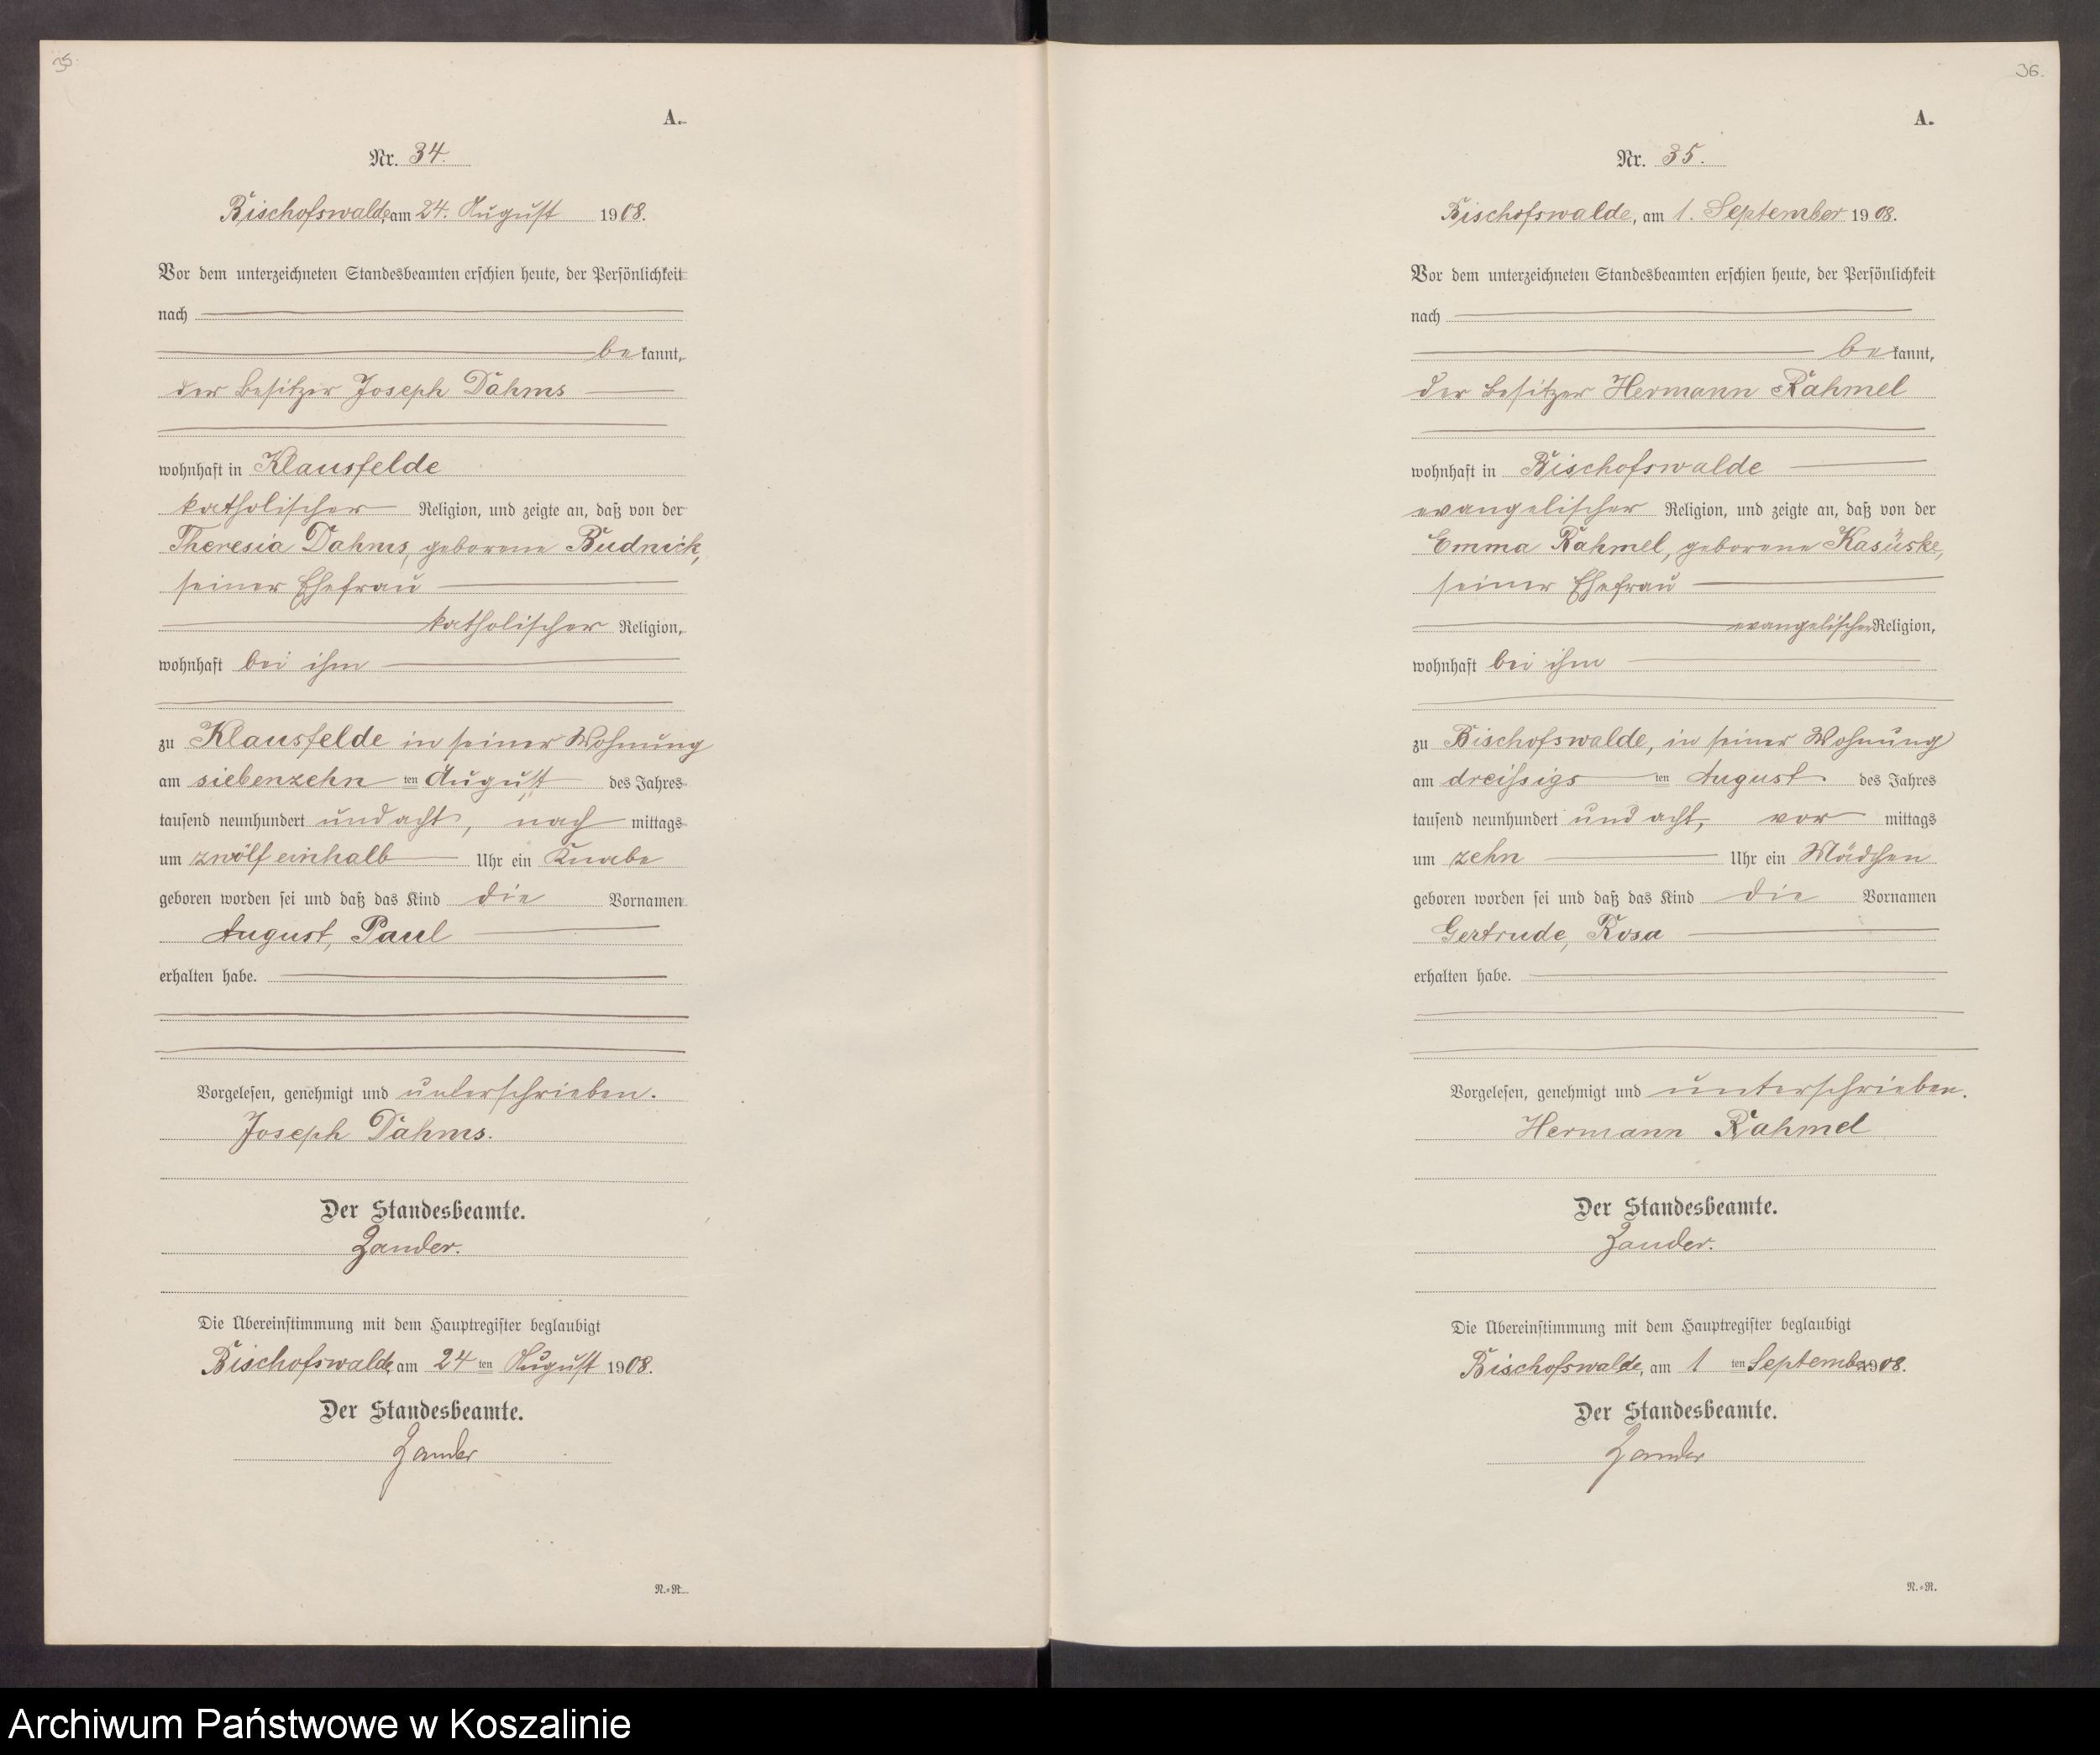 35.
A.
Nr. 34.
Bischofswalde, am 24. August 1908.
Vor dem unterzeichneten Standesbeamten erschien heute, der Persönlichkeit
nach
bekannt,
der Besitzer Joseph Dahms
wohnhaft in Klausfelde
katholischer Religion, und zeigte an, daß von der
Theresia Dahms, geborene Budnick,
seiner Ehefrau
katholischer Religion,
wohnhaft bei ihm
zu Klausfelde in seiner Wohnung
am siebenzehn ten August des Jahres
tausend neunhundert und acht, nach mittags
um zwölf einhalb Uhr ein Knabe
geboren worden sei und daß das Kind die Vornamen
August, Paul
erhalten habe.
Vorgelesen, genehmigt und unterschrieben.
Joseph Dahms.
Der Standesbeamte.
Zander.
Die Übereinstimmung mit dem Hauptregister beglaubigt
Bischofswalde, am 24 ten August 1908.
Der Standesbeamte.
Zander
N.=R.
36.
A.
Nr. 35.
Bischofswalde, am 1. September 1908.
Vor dem unterzeichneten Standesbeamten erschien heute, der Persönlichkeit
nach
bekannt,
der Besitzer Hermann Rahmel
wohnhaft in Bischofswalde
evangelischer Religion, und zeigte an, daß von der
Emma Rahmel, geborene Kasüske,
seiner Ehefrau
evangelischer Religion,
wohnhaft bei ihm
zu Bischofswalde, in seiner Wohnung
am dreißigs ten August des Jahres
tausend neunhundert und acht, vor mittags
um zehn Uhr ein Mädchen
geboren worden sei und daß das Kind die Vornamen
Gertrude, Rosa
erhalten habe.
Vorgelesen, genehmigt und unterschrieben.
Hermann Rahmel
Der Standesbeamte.
Zander.
Die Übereinstimmung mit dem Hauptregister beglaubigt
Bischofswalde, am 1 ten September 1908.
Der Standesbeamte.
Zander
N.=R.
Archiwum Państwowe w Koszalinie